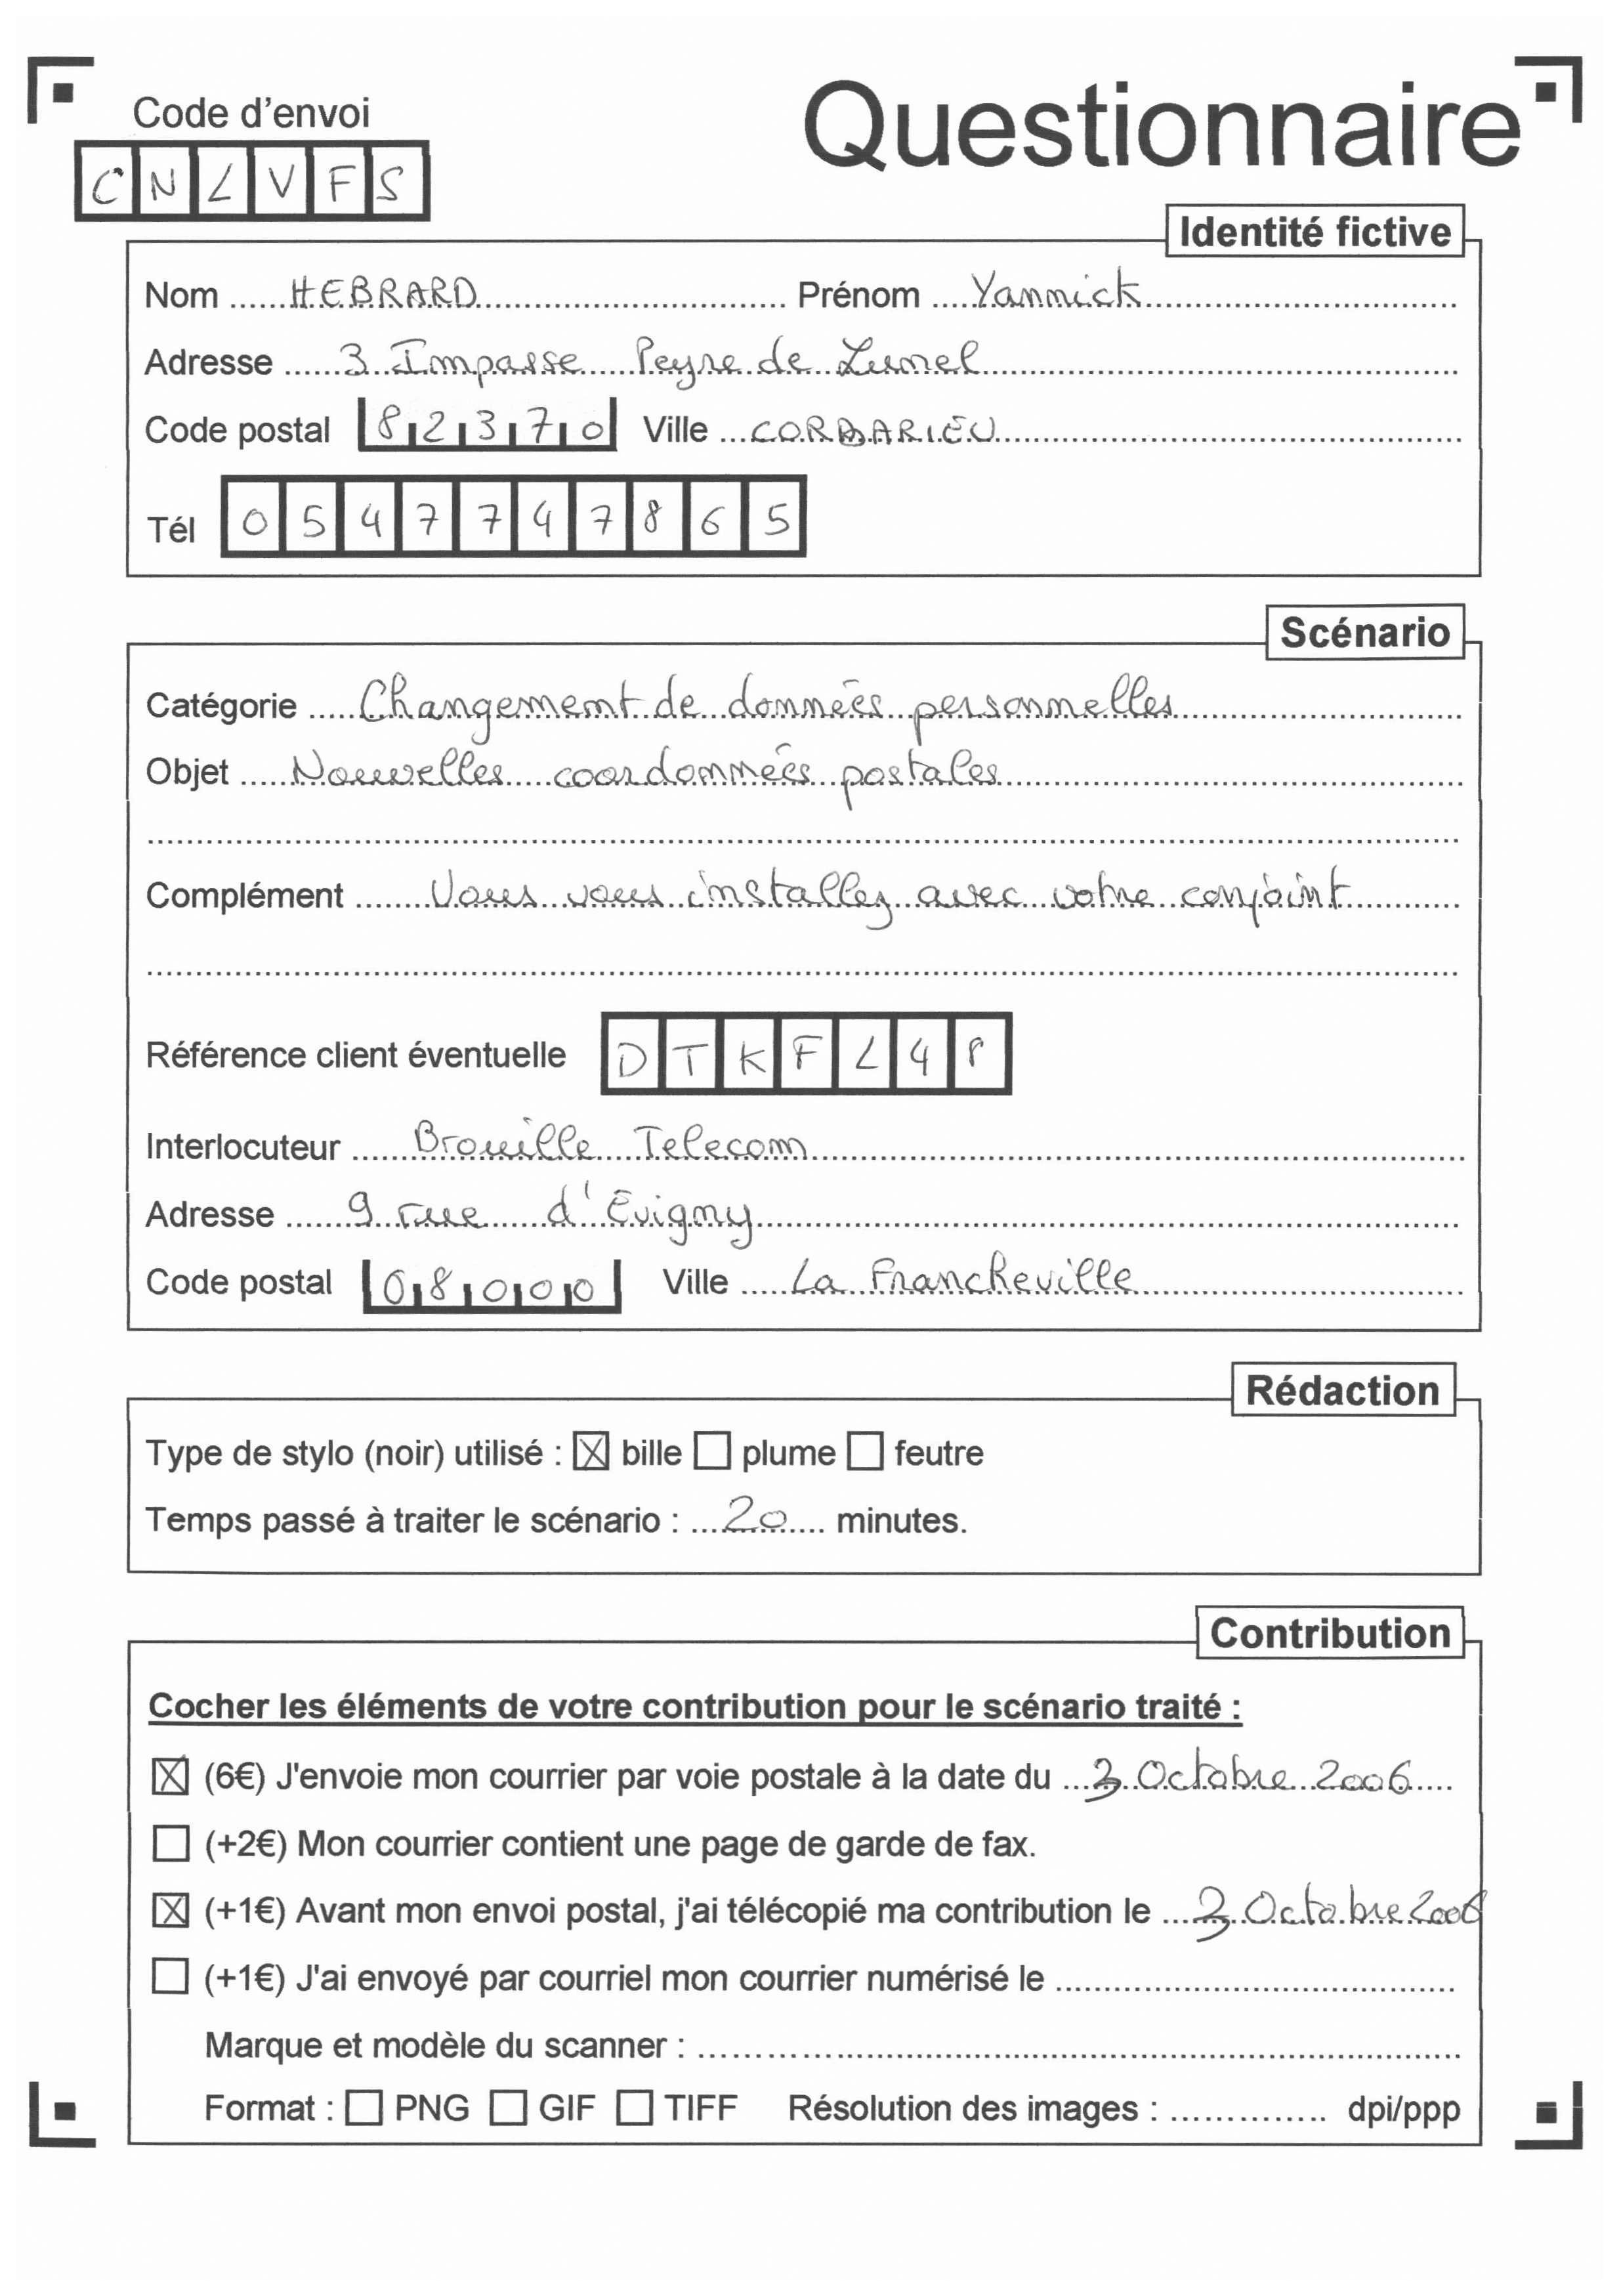 Code d'envoi
Questionnaire
C N L V F S
Identité fictive
Nom HEBRARD Prénom Yannick
Adresse 3 Impasse Peyre de Lunel
Code postal 82370 Ville CORBARIEU
Tél 0547747865
Scénario
Catégorie Changement de données personnelles
Objet Nouvelles coordonnées postales
Complément Vous vous installez avec votre conjoint
Référence client éventuelle D T K F L 4
Interlocuteur Brouille Telecom
Adresse 9 rue d'Evigny
Code postal 08000 Ville La Francheville
Rédaction
Type de stylo (noir) utilisé : ☒ bille ☐ plume ☐ feutre
Temps passé à traiter le scénario : 20 minutes.
Contribution
Cocher les éléments de votre contribution pour le scénario traité :
☒ (6€) J'envoie mon courrier par voie postale à la date du 3 Octobre 2006
☐ (+2€) Mon courrier contient une page de garde de fax.
☒ (+1€) Avant mon envoi postal, j'ai télécopié ma contribution le 3 Octobre 2006
☐ (+1€) J'ai envoyé par courriel mon courrier numérisé le
Marque et modèle du scanner :
Format : ☐ PNG ☐ GIF ☐ TIFF Résolution des images : dpi/ppp